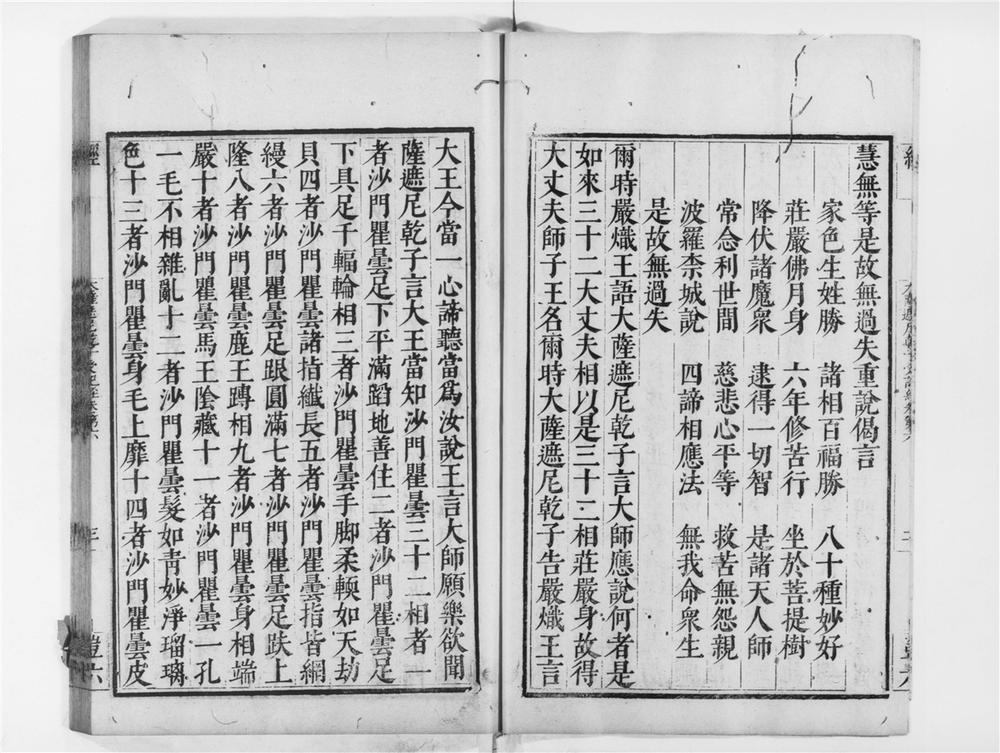 慧無等是故無過失重說偈言
家色生姓勝　諸相百福勝　八十種妙好
莊嚴佛月身　六年修苦行　坐於菩提樹
降伏諸魔衆　逮得一切智　是諸天人師
常念利世間　慈悲心平等　救苦無怨親
波羅柰城說　四諦相應法　無我命衆生
是故無過失
爾時嚴熾王語大薩遮尼乾子言大師應說何者是
如來三十二大丈夫相以是三十二相莊嚴身故得
大丈夫師子王名爾時大薩遮尼乾子告嚴熾王言
大王今當一心諦聽當爲汝說王言大師願樂欲聞
薩遮尼乾子言大王當知沙門瞿曇三十二相者一
者沙門瞿曇足下平滿蹈地善住二者沙門瞿曇足
下具足千輻輪相三者沙門瞿曇手脚柔輭如天劫
貝四者沙門瞿曇諸指纖長五者沙門瞿曇指皆網
縵六者沙門瞿曇足跟圓滿七者沙門瞿曇足趺上
隆八者沙門瞿曇鹿王蹲相九者沙門瞿曇身相端
嚴十者沙門瞿曇馬王陰藏十一者沙門瞿曇一孔
一毛不相雜亂十二者沙門瞿曇髮如靑妙淨瑠璃
色十三者沙門瞿曇身毛上靡十四者沙門瞿曇皮